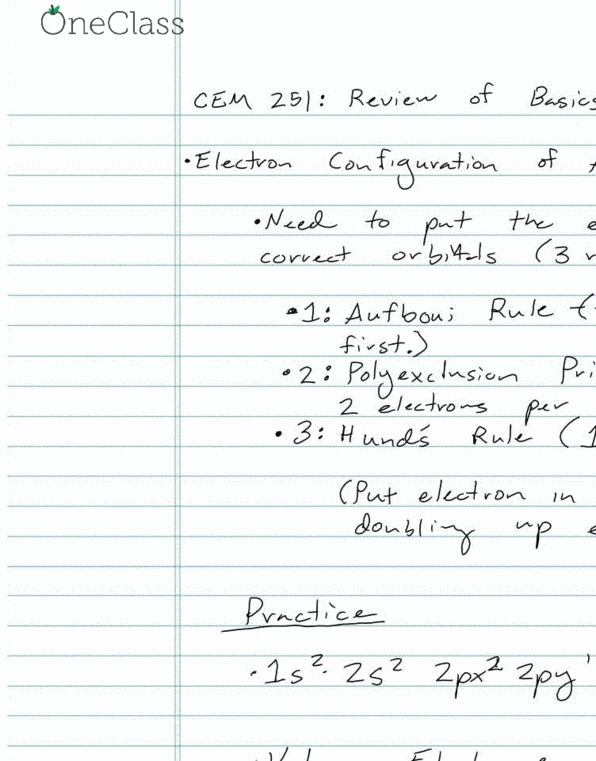 OneClass
CEM 251: Review of Basics
•Electron Configuration of
•Need to put the e
correct orbitals (3
•1: Aufboui Rule (
first.)
•2: Polyexclusion Pri
2 electrons per
•3: Hund's Rule (1
(Put electron in
doubling up e
Practice
•1s² 2s² 2px² 2py¹